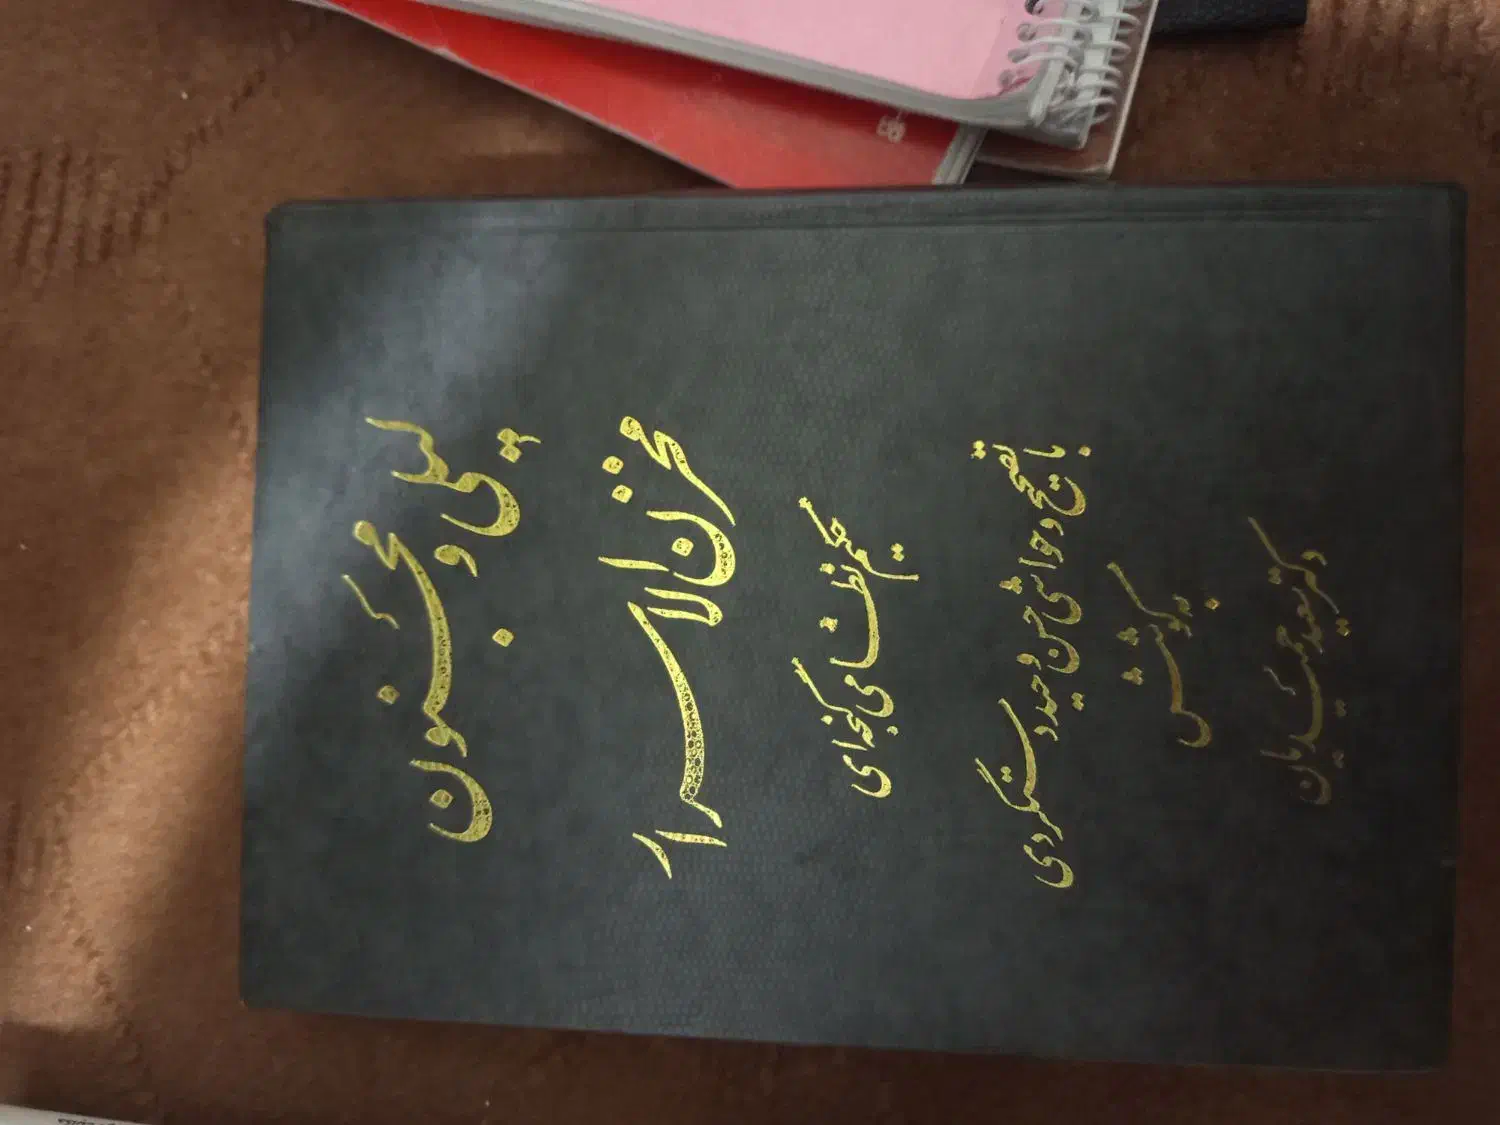 لیلی و مجنون
مخزن الاسرار
حکیم نظامی گنجه‌ای
با تصحیح و حواشی حسن وحید دستگردی
به کوشش
دکتر سعید حمیدیان